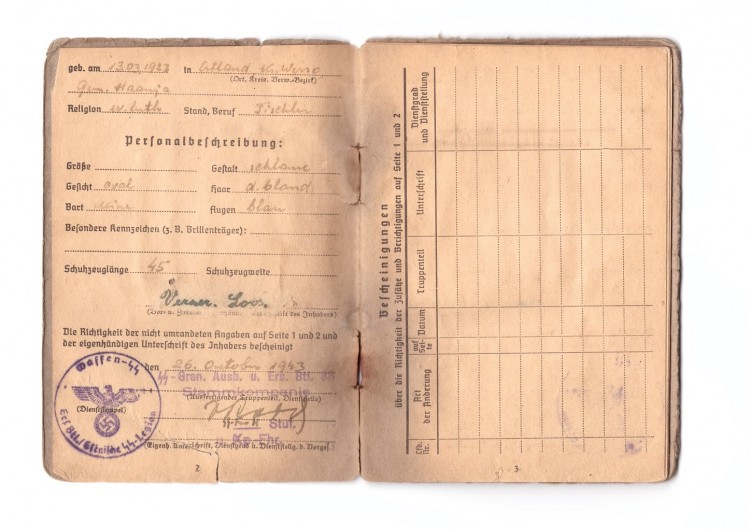 geb. am 13.03.1923 in Estland Kr. Werro
(Ort, Kreis, Verw.-Bezirk)
Gem. Haanja
Religion ev. luth. Stand, Beruf Tischler
Personalbeschreibung:
Größe Gestalt schlank
Gesicht oval Haar d. blond
Bart keine Augen blau
Besondere Kennzeichen (z. B. Brillenträger):
Schuhzeuglänge 45 Schuhzeugweite
Verner Loos
(Vor- u. Zuname, des Inhabers)
Die Richtigkeit der nicht umrandeten Angaben auf Seite 1 und 2 und
der eigenhändigen Unterschrift des Inhabers bescheinigt
den 26. Oktober 1943
SS-Gren. Ausb. u. Ers. Btl.
Stammkompanie
(Ausfertigender Truppenteil, Dienststelle)
Waffen-SS
(Dienststempel)
Ers. Btl. Estnische SS-Legion
Stuf.
Kp.-Fhr.
(Eigenh. Unterschrift, Dienstgrad u. Dienststellg. d. Vorges.)
2
Bescheinigungen
über die Richtigkeit der Zusätze und Berichtigungen auf Seite 1 und 2
Lfd. Nr.
Art der Änderung
auf Seite
Datum
Truppenteil
Unterschrift
Dienstgrad und Dienststellung
3